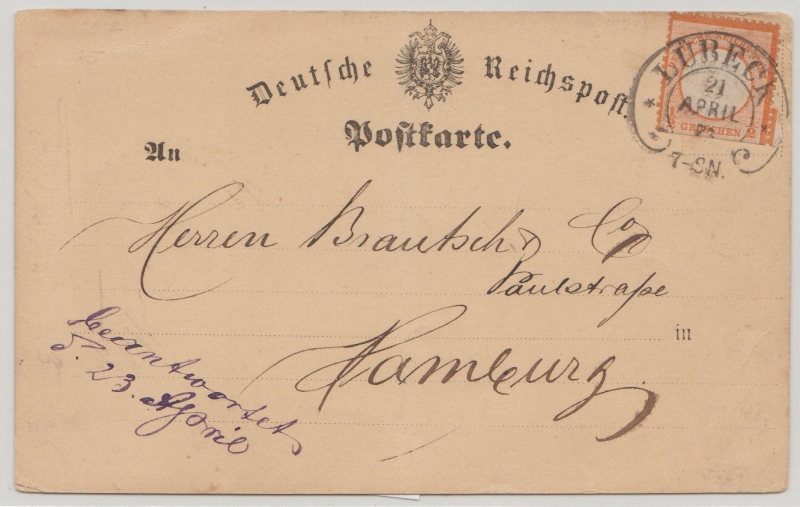 Deutsche Reichspost.
Postkarte.
LÜBECK
21
APRIL
7-8N.
GROSCHEN
An
Herren Brautsch & Co
Paulstraße
in
Hamburg.
beantwortet
d. 23. April